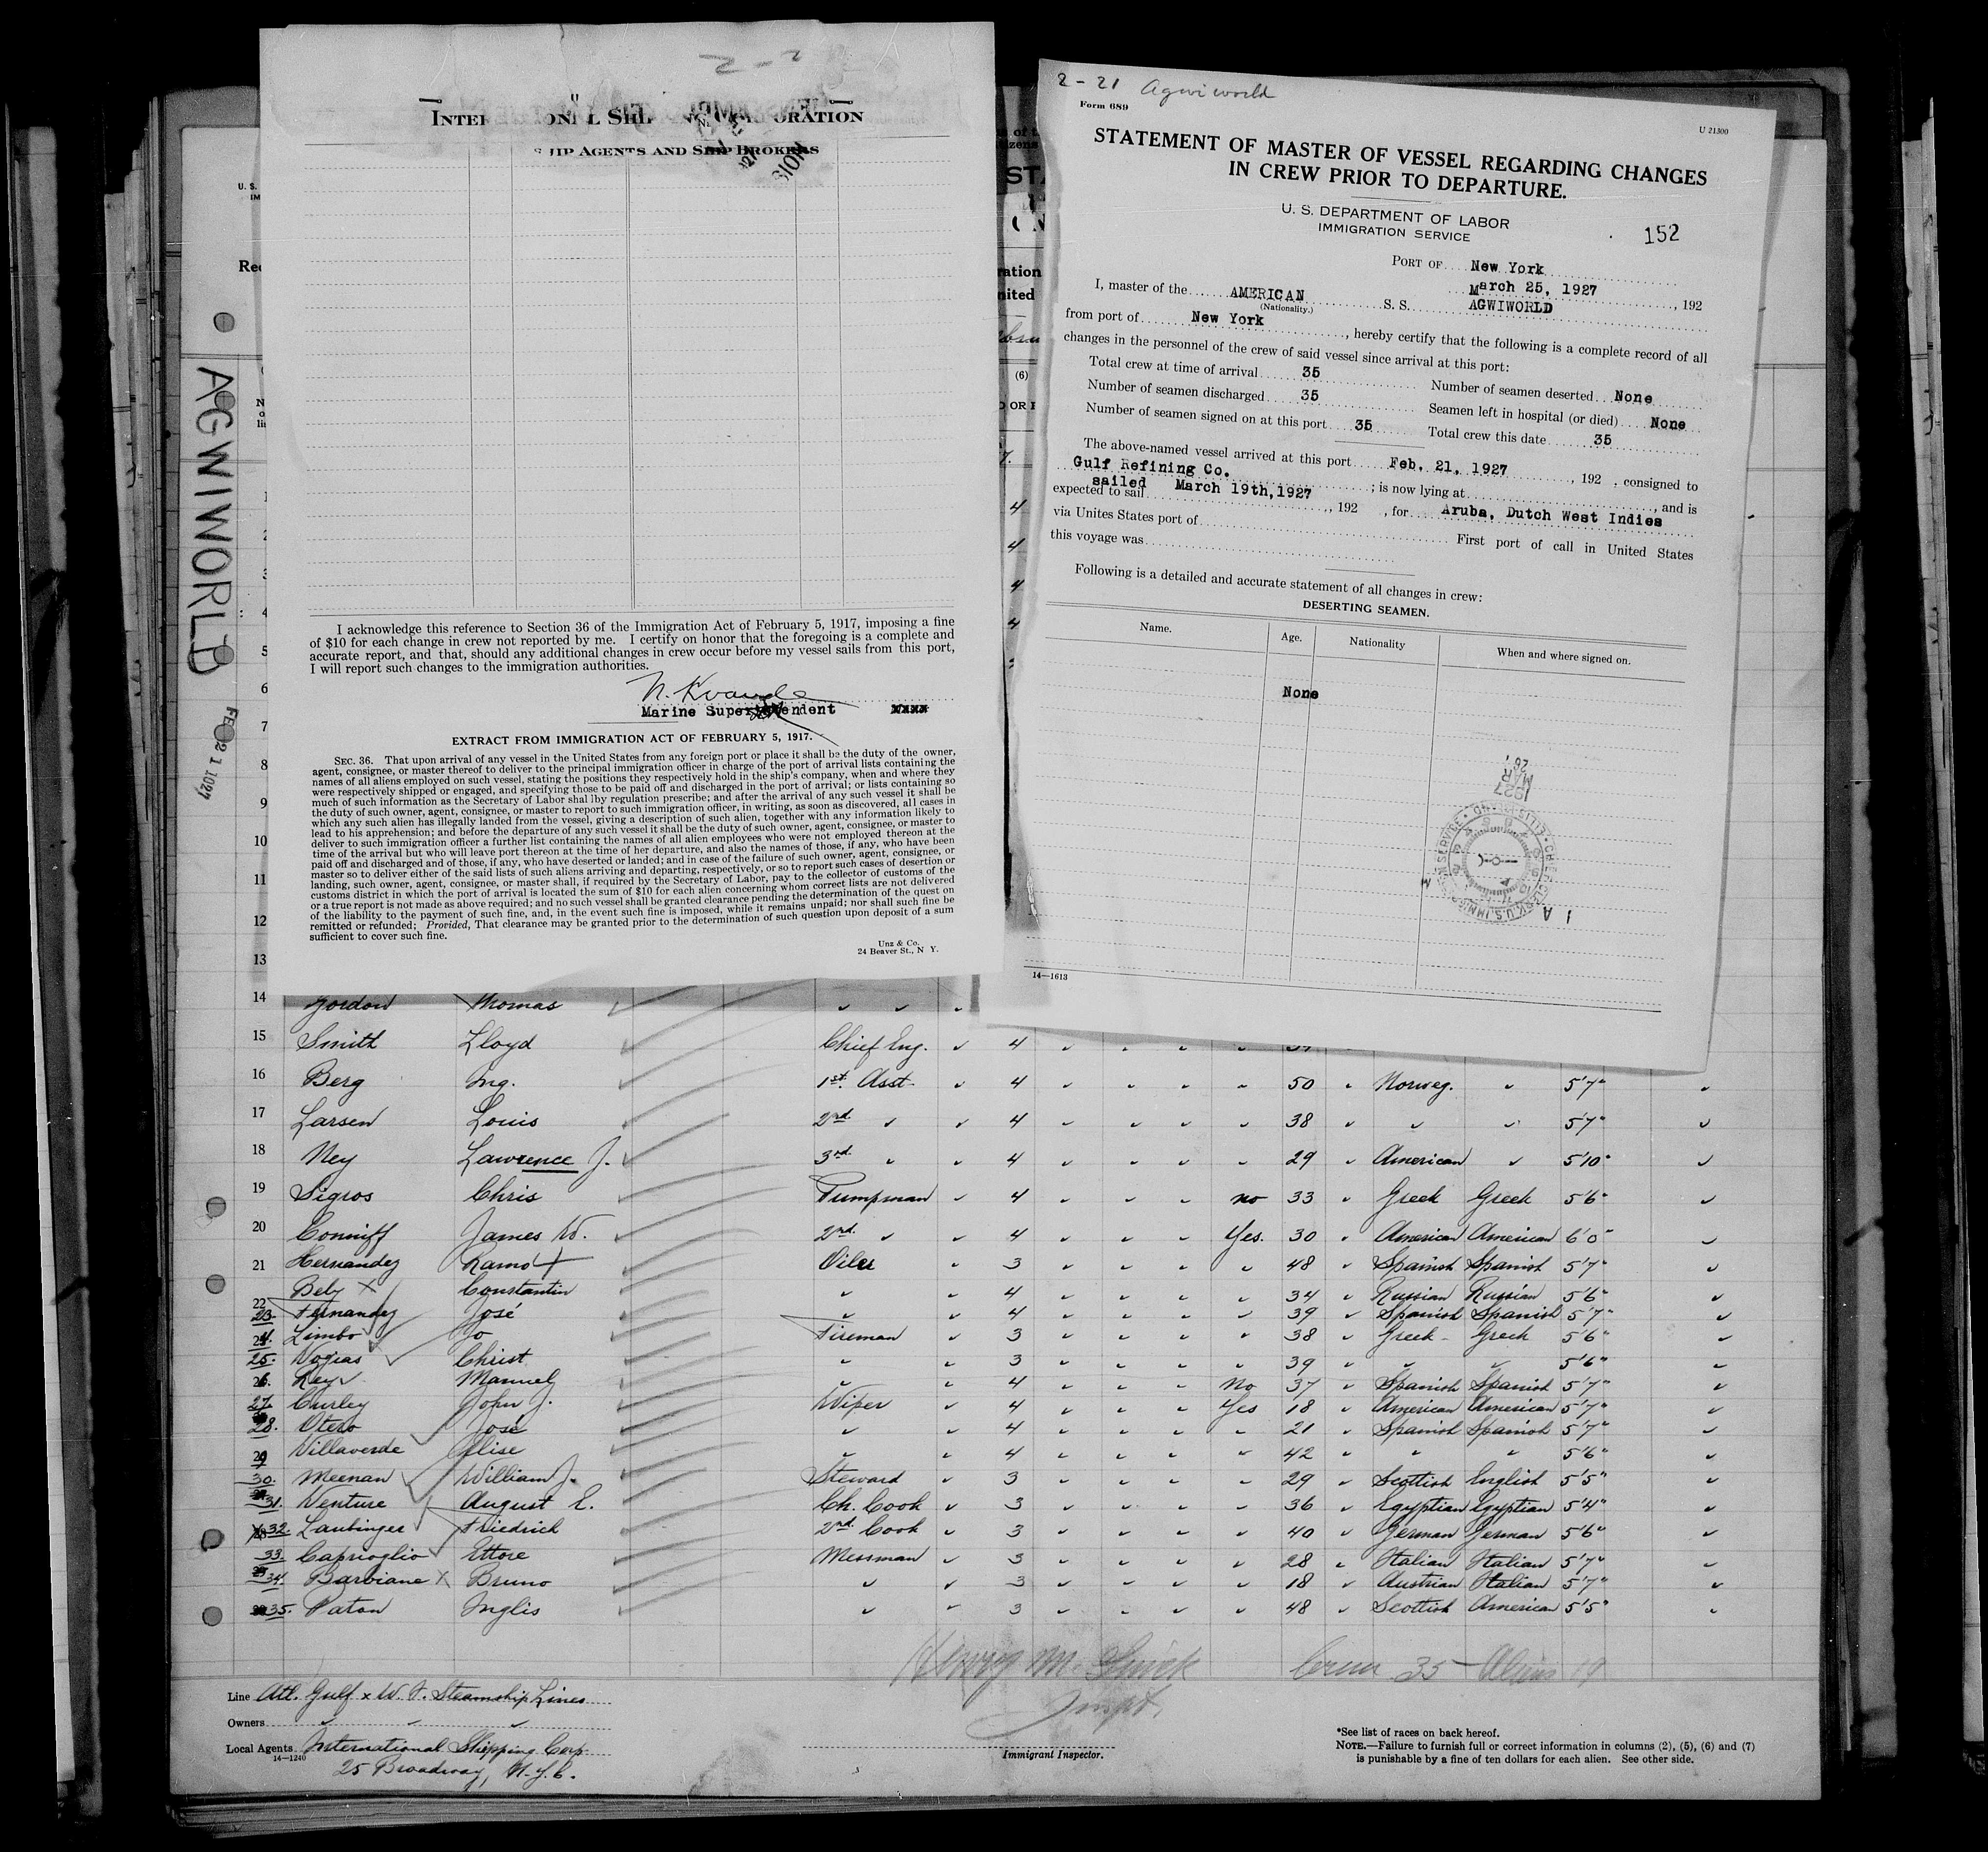 2 - 2
SHIP AGENTS AND SHIP BROKERS
I acknowledge this reference to Section 36 of the Immigration Act of February 5, 1917, imposing a fine
of $10 for each change in crew not reported by me. I certify on honor that the foregoing is a complete and
accurate report, and that, should any additional changes in crew occur before my vessel sails from this port,
I will report such changes to the immigration authorities.
N. Kvande
Marine Superintendent
EXTRACT FROM IMMIGRATION ACT OF FEBRUARY 5, 1917.
SEC. 36. That upon arrival of any vessel in the United States from any foreign port or place it shall be the duty of the owner,
agent, consignee, or master thereof to deliver to the principal immigration officer in charge of the port of arrival lists containing the
names of all aliens employed on such vessel, stating the positions they respectively hold in the ship's company, when and where they
were respectively shipped or engaged, and specifying those to be paid off and discharged in the port of arrival; or lists containing so
much of such information as the Secretary of Labor shal lby regulation prescribe; and after the arrival of any such vessel it shall be
the duty of such owner, agent, consignee, or master to report to such immigration officer, in writing, as soon as discovered, all cases in
which any such alien has illegally landed from the vessel, giving a description of such alien, together with any information likely to
lead to his apprehension; and before the departure of any such vessel it shall be the duty of such owner, agent, consignee, or master to
deliver to such immigration officer a further list containing the names of all alien employees who were not employed thereon at the
time of the arrival but who will leave port thereon at the time of her departure, and also the names of those, if any, who have been
paid off and discharged and of those, if any, who have deserted or landed; and in case of the failure of such owner, agent, consignee, or
master so to deliver either of the said lists of such aliens arriving and departing, respectively, or so to report such cases of desertion or
landing, such owner, agent, consignee, or master shall, if required by the Secretary of Labor, pay to the collector of customs of the
customs district in which the port of arrival is located the sum of $10 for each alien concerning whom correct lists are not delivered
or a true report is not made as above required; and no such vessel shall be granted clearance pending the determination of the quest on
of the liability to the payment of such fine, and, in the event such fine is imposed, while it remains unpaid; nor shall such fine be
remitted or refunded; Provided, That clearance may be granted prior to the determination of such question upon deposit of a sum
sufficient to cover such fine.
Unz & Co.
24 Beaver St., N Y.
2 - 21 Agwiworld
Form 689
U 21300
STATEMENT OF MASTER OF VESSEL REGARDING CHANGES
IN CREW PRIOR TO DEPARTURE.
U. S. DEPARTMENT OF LABOR
IMMIGRATION SERVICE
152
PORT OF New York
March 25, 1927, 192
I, master of the AMERICAN S. S. AGWIWORLD
(Nationality.)
from port of New York, hereby certify that the following is a complete record of all
changes in the personnel of the crew of said vessel since arrival at this port:
Total crew at time of arrival 35 Number of seamen deserted None
Number of seamen discharged 35 Seamen left in hospital (or died) None
Number of seamen signed on at this port 35 Total crew this date 35
The above-named vessel arrived at this port Feb. 21, 1927, 192 , consigned to
Gulf Refining Co. ; is now lying at , and is
sailed March 19th, 1927
expected to sail , 192 , for Aruba, Dutch West Indies
via Unites States port of First port of call in United States
this voyage was
Following is a detailed and accurate statement of all changes in crew:
DESERTING SEAMEN.
Name. Age. Nationality When and where signed on.
None
1927
MAR
26
14—1613
AGWIWORLD
FEB 21 1927
(6)
1
2
3
4
5
6
7
8
9
10
11
12
13
14 Gordon Thomas
15 Smith Lloyd Chief Eng. 4
16 Berg Ing. 1st Asst. 4 50 Norweg. 5'7"
17 Larsen Louis 2nd 4 38 5'7"
18 Ney Lawrence J. 3rd 4 29 American 5'10"
19 Sigros Chris Pumpman 4 no 33 Greek Greek 5'6"
20 Conniff James W. 2nd 4 Yes. 30 American American 6'0"
21 Hernandez Ramo Oiler 3 48 Spanish Spanish 5'7"
22 Bely X Constantin 4 34 Russian Russian 5'6"
23. Fernandez José 4 39 Spanish Spanish 5'7"
24. Limbo Jo Fireman 3 38 Greek Greek 5'6"
25. Vogias Christ 3 39 5'6"
26. Rey Manuel 4 No 37 Spanish Spanish 5'7"
27. Curley John J. Wiper 4 Yes 18 American American 5'7"
28. Otero José 4 21 Spanish Spanish 5'7"
29 Villaverde Elise 4 42 5'6"
30. Meenan William J. Steward 3 29 Scottish English 5'5"
31. Venture August E. Ch. Cook 3 36 Egyptian Egyptian 5'4"
32. Laubinger Friedrich 2nd Cook 3 40 German German 5'6"
33. Caprioglio Ettore Messman 3 28 Italian Italian 5'7"
34. Barbiane X Bruno 3 18 Austrian Italian 5'7"
35. Paton Inglis 3 48 Scottish American 5'5"
Crew 35 - Aliens 19
Inspt.
Immigrant Inspector.
Line Atl. Gulf & W. I. Steamship Lines
Owners
Local Agents International Shipping Corp.
14—1240
25 Broadway, N.Y.C.
*See list of races on back hereof.
NOTE.—Failure to furnish full or correct information in columns (2), (5), (6) and (7)
is punishable by a fine of ten dollars for each alien. See other side.